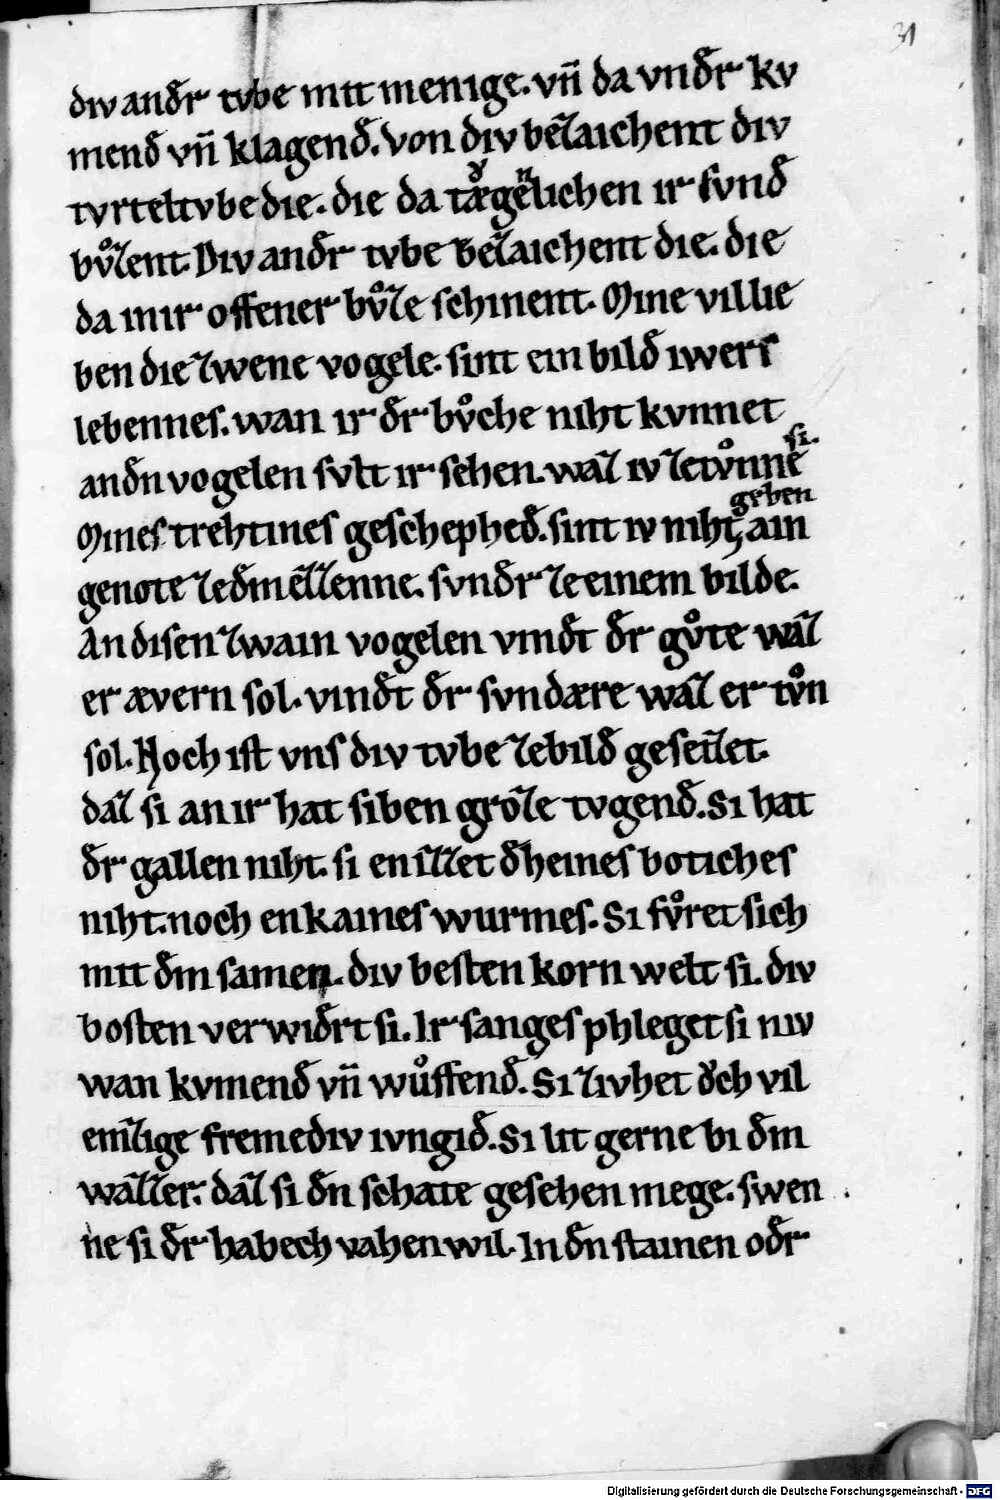 31
div andr̄ tvbe mit menige. vn̄ da vndr̄ kv
mend̄ vn̄ klagend̄. Von div bezaichent div
tvrteltvbe die. die da tægelichen ir svnd̄
bvͦzent. Div andr̄ tvbe bezaichent die. die
da mir offener bvͦze schinent. Mine vil lie
ben die zwene vogele. sint ein bild̄ iwers
lebennes. wan ir dr̄ bvͦche niht kvnnet
an dn̄ vogelen svlt ir sehen. waz iv ze tvͦnne si.
Mines trehtines geschephed̄. sint iv niht geben ain
genote ze dm̄ ezzenne. svndr̄ ze einem bilde.
An disen zwain vogelen vindt̄ dr̄ gvͦte waz
er ævern sol. vindt̄ dr̄ svndære waz er tvͦn
sol. Noch ist vns div tvbe ze bild̄ gesezet.
daz si an ir hat siben groze tvgend̄. Si hat
dr̄ gallen niht. si en izzet dh̄eines botiches
niht. noch enkaines wurmes. Si fvͦret sich
mit dm̄ samen. div besten korn welt si. div
bosten verwidr̄t si. Ir sanges phleget si niv
wan kvmend̄ vn̄ wuͦffend̄. Si zivhet oͮch vil
emzige fremediv ivngid̄. Si sit gerne bi dm̄
wazzer. daz si dn̄ schate gesehen mege. swen
ne si dr̄ habech vahen wil. In dn̄ stainen odr̄
Digitalisierung gefördert durch die Deutsche Forschungsgemeinschaft - DFG